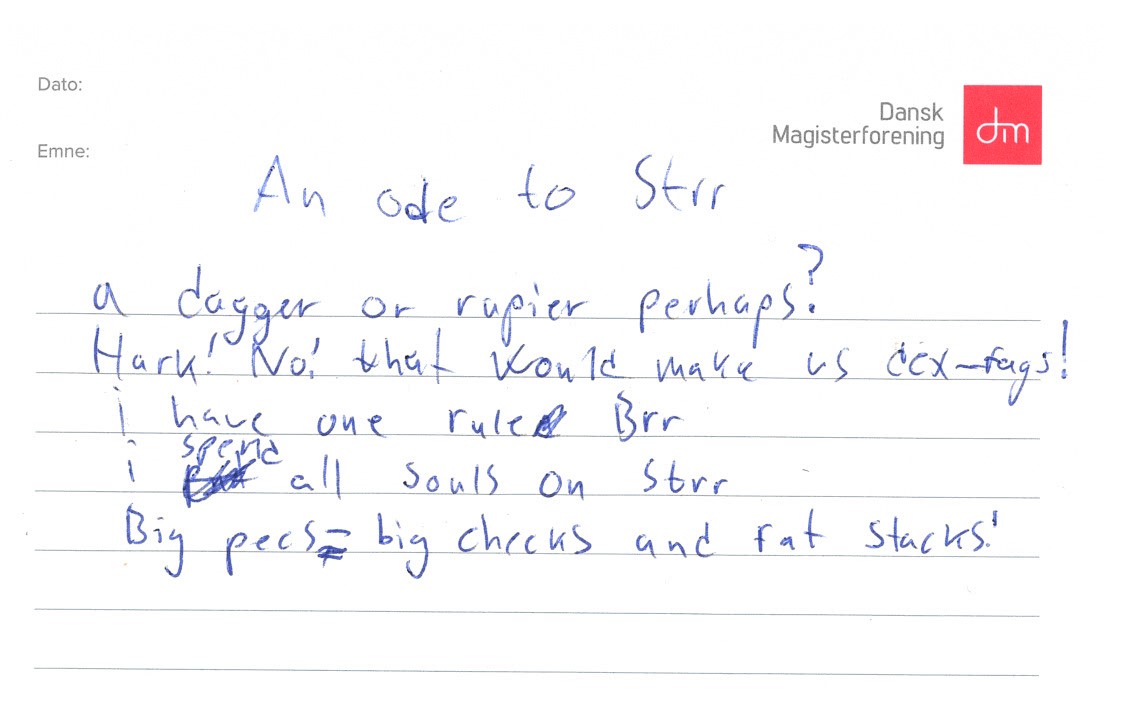 Dato:
Dansk
Magisterforening
dm
Emne:
An ode to Strr
a dagger or rapier perhaps?
Hark! No! that would make us dex-fags!
i have one rule Brr
i spend all souls on Strr
Big pecs = big checks and fat stacks!